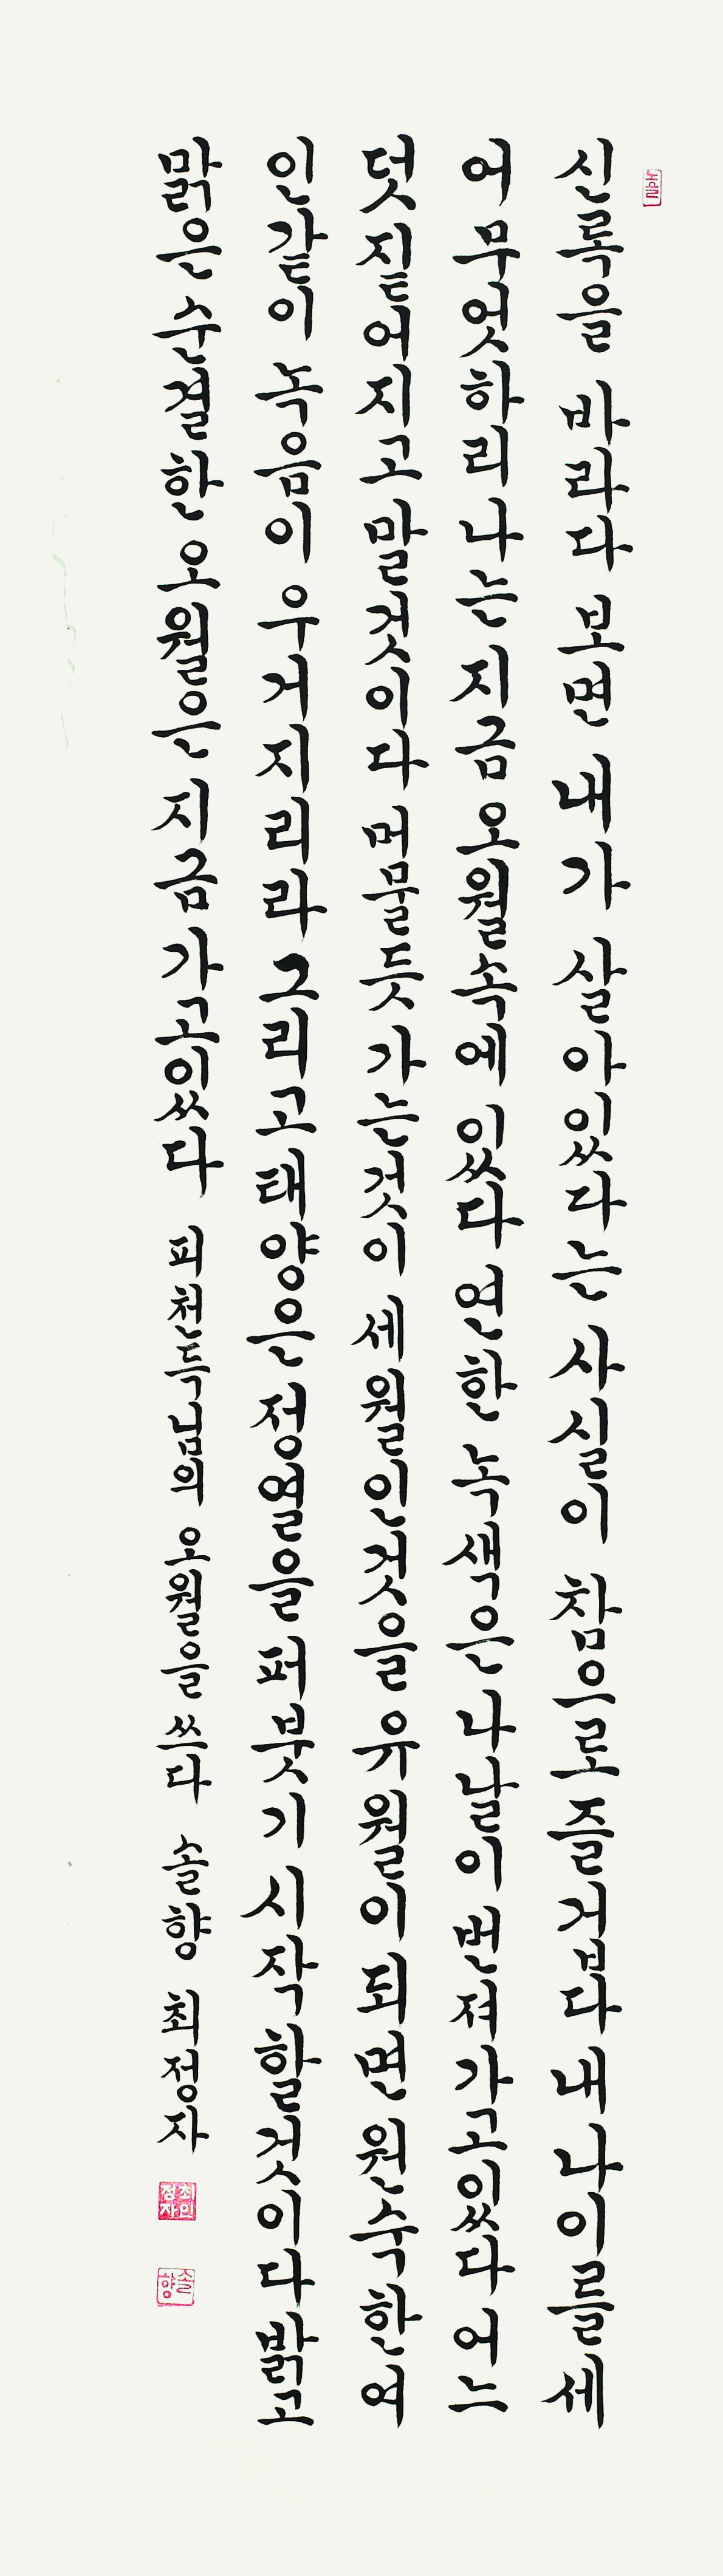 신록을 바라다 보면 내가 살아있다는 사실이 참으로 즐겁다 내 나이를 세
어 무엇하리 나는 지금 오월속에 있다 연한 녹색은 나날이 번져가고있다 어느
덧 짙어지고 말것이다 머물듯 가는것이 세월인것을 유월이 되면 원숙한 여
인같이 녹음이 우거지리라 그리고 태양은 정열을 퍼붓기 시작할것이다 밝고
맑은 순결한 오월은 지금 가고있다 피천득님의 오월을 쓰다 솔향 최정자
최정자인
솔향